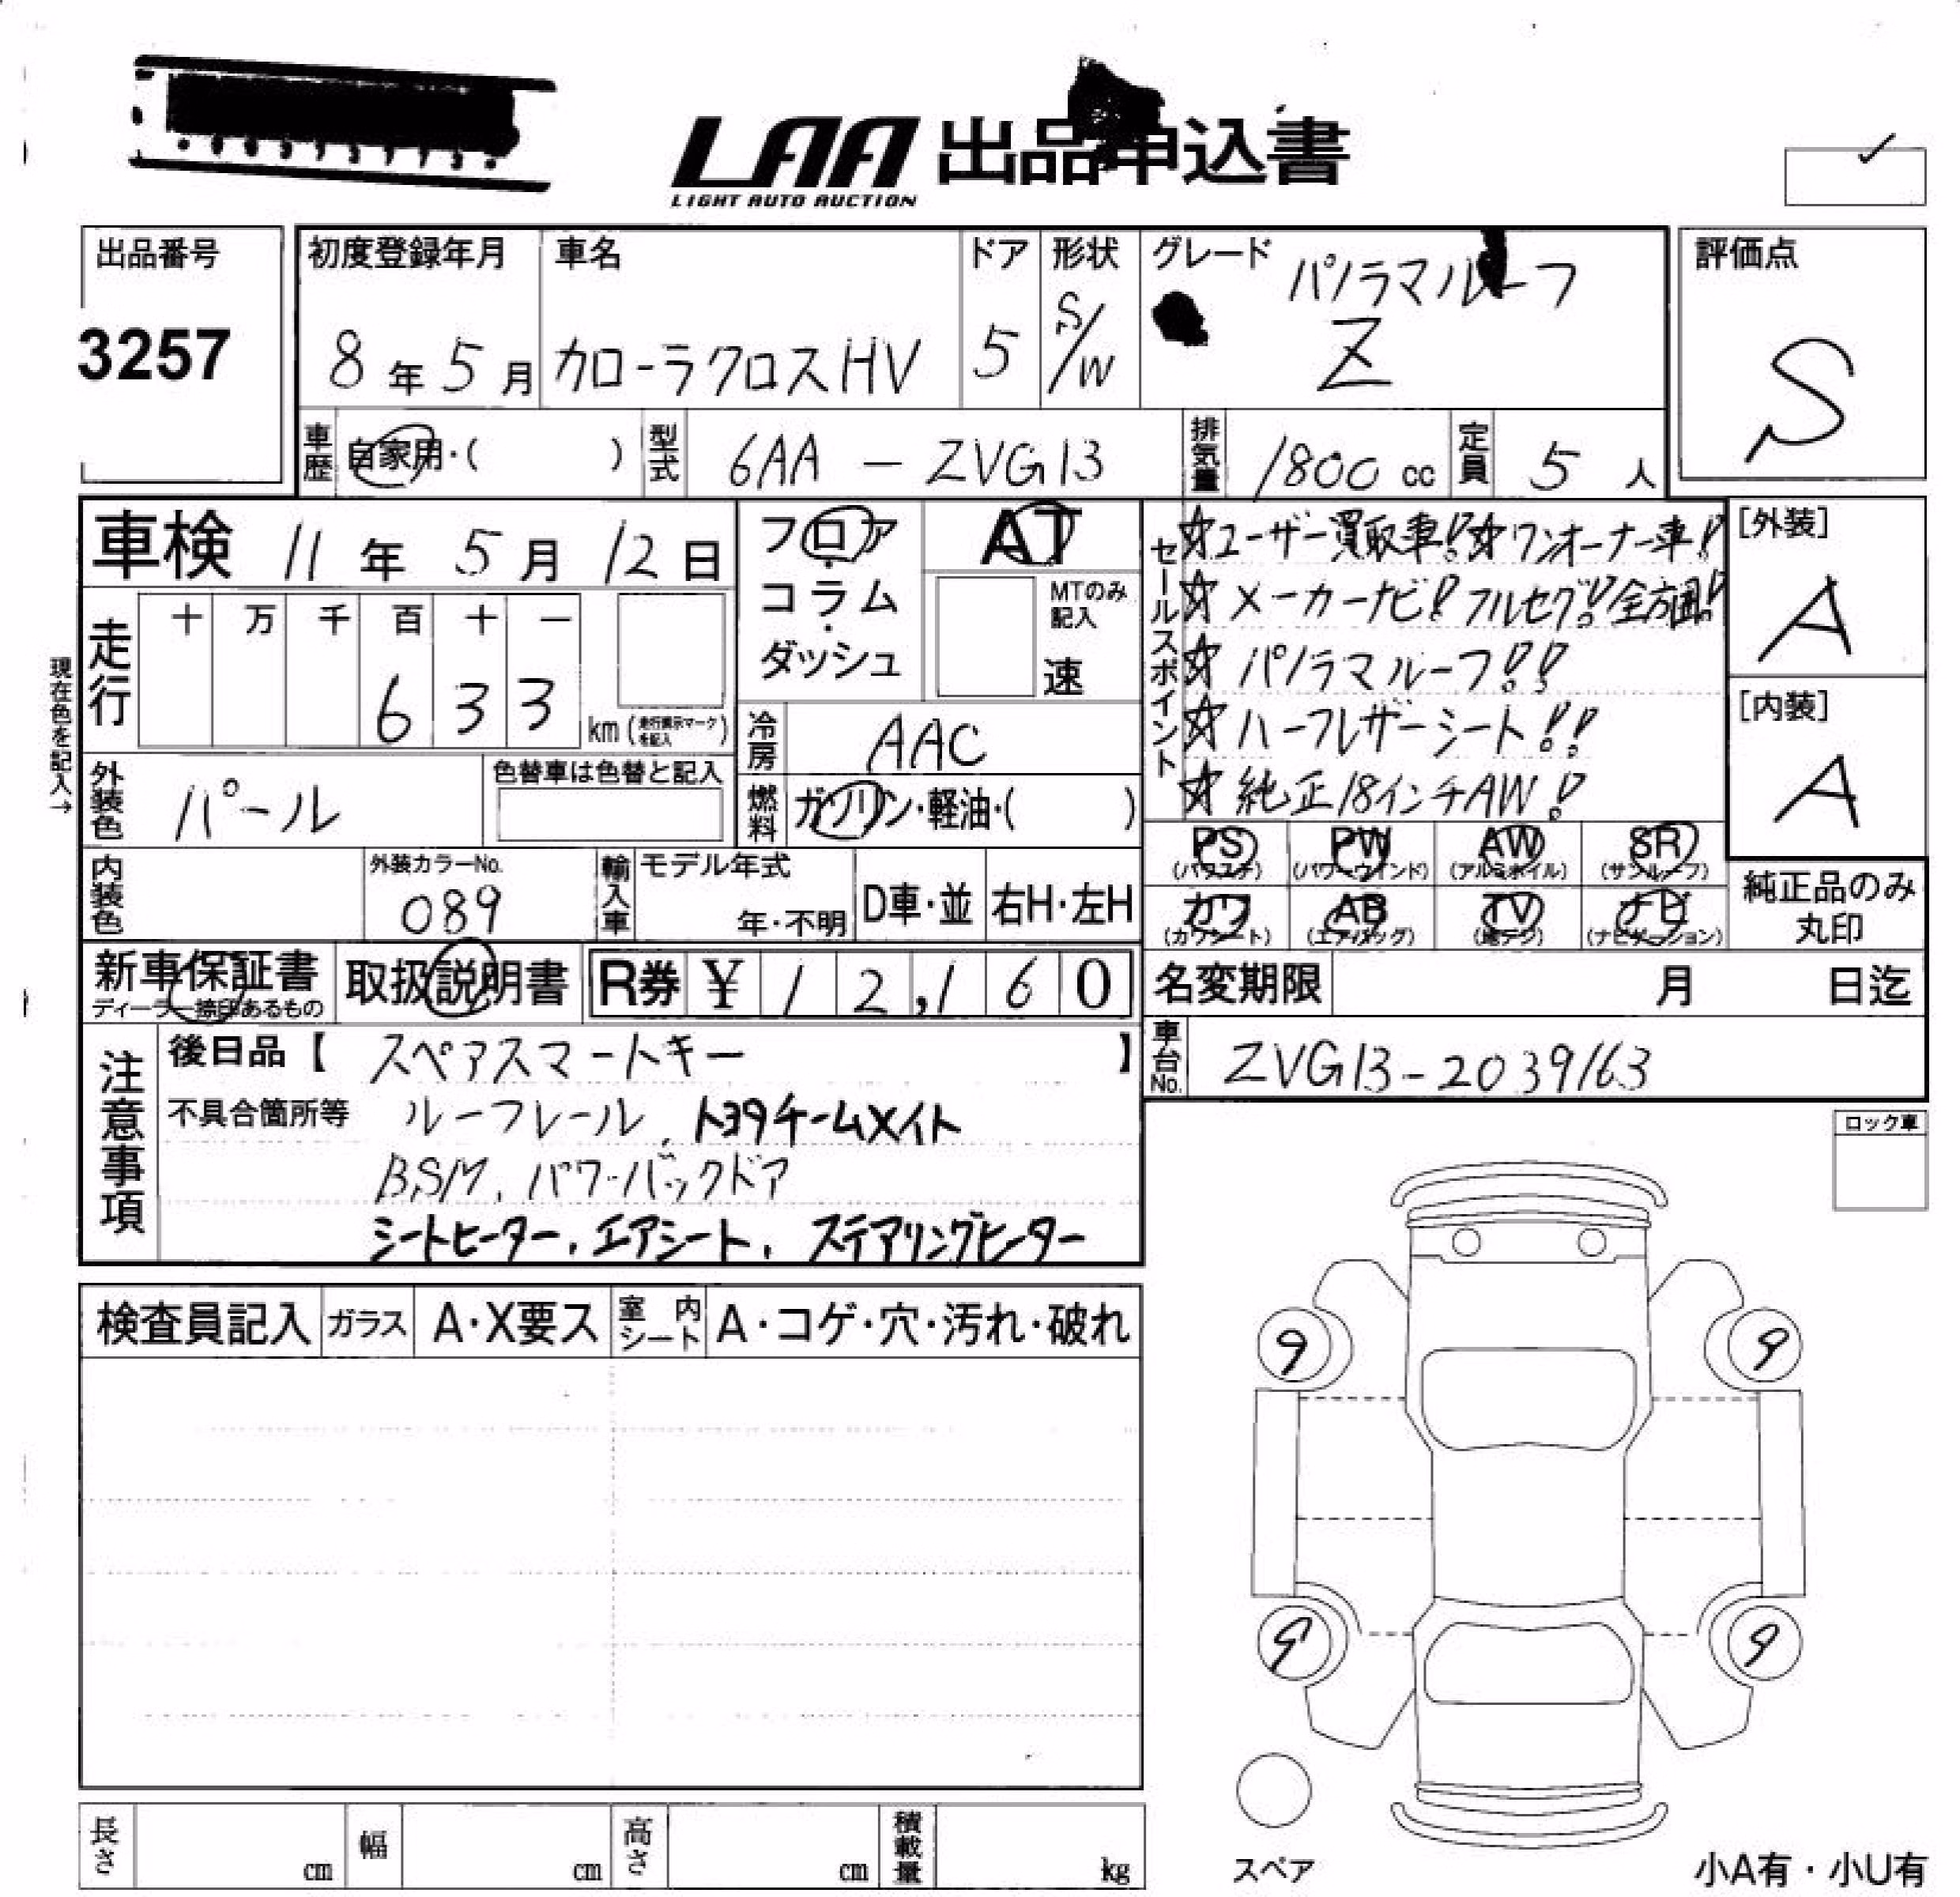 LAA 出品申込書
LIGHT AUTO AUCTION
出品番号
3257
初度登録年月
8年5月
車名
カローラクロスHV
ドア
5
形状
S/W
グレード
パノラマルーフ
Z
評価点
S
車歴 自家用・( )
型式 6AA － ZVG13
排気量 1800 cc
定員 5 人
車検 11年 5月 12日
フロア・コラム・ダッシュ
AT
MTのみ記入
速
セールスポイント
☆ユーザー買取車!☆ワンオーナー車!
☆メーカーナビ!フルセグ!全方囲!
☆パノラマルーフ!!
☆ハーフレザーシート!!
☆純正18インチAW!
[外装]
A
[内装]
A
現在色を記入→
走行 十 万 千 百 十 一
6 3 3
km (走行表示マークを記入)
冷房 AAC
外装色 パール
色替車は色替と記入
燃料 ガソリン・軽油・( )
PS (パワステ) PW (パワーウインド) AW (アルミホイル) SR (サンルーフ)
カワ (カワシート) AB (エアバッグ) TV (地デジ) ナビ (ナビゲーション)
純正品のみ
丸印
内装色
外装カラーNo.
089
輸入車 モデル年式
年・不明
D車・並
右H・左H
新車保証書
ディーラー捺印あるもの
取扱説明書
R券 ¥ 12,160
名変期限 月 日迄
車台No. ZVG13-2039163
注意事項
後日品【 スペアスマートキー 】
不具合箇所等 ルーフレール、トヨタチームメイト
BSM、パワーバックドア
シートヒーター、エアシート、ステアリングヒーター
ロック車
検査員記入 ガラス A・X要ス 室内シート A・コゲ・穴・汚れ・破れ
9 9
9 9
スペア
小A有・小U有
長さ cm 幅 cm 高さ cm 積載量 kg